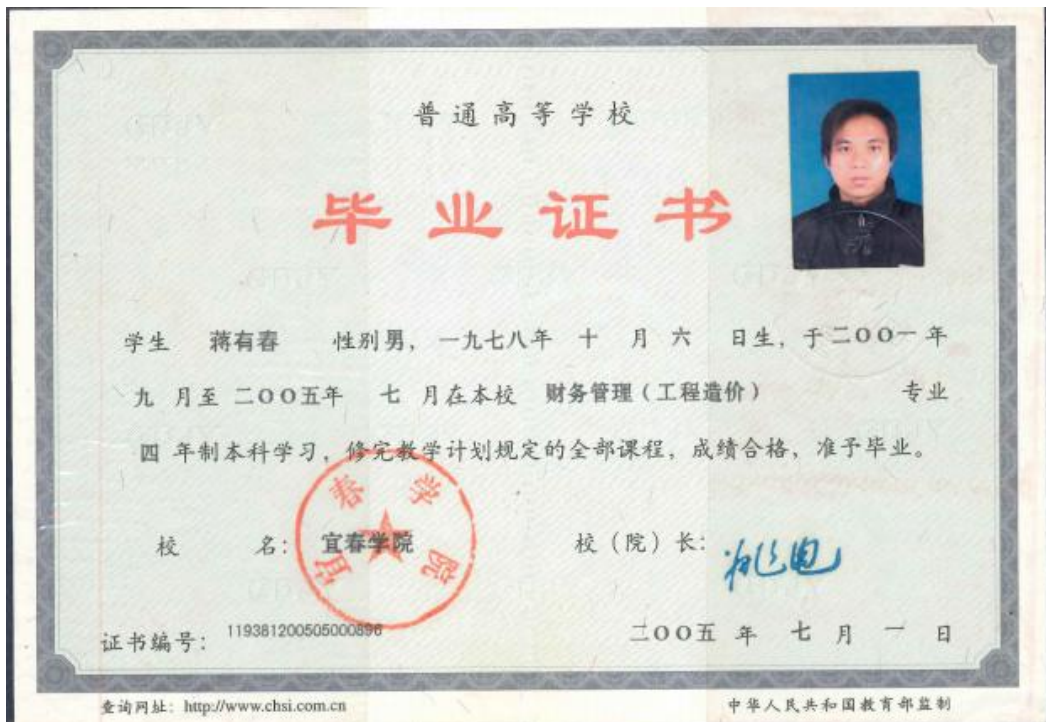 普通高等学校
毕业证书
学生 蒋有春 性别男，一九七八年 十 月 六 日生，于二〇〇一年
九 月至 二〇〇五年 七 月在本校 财务管理（工程造价） 专业
四 年制本科学习，修完教学计划规定的全部课程，成绩合格，准予毕业。
校 名：宜春学院 校（院）长：
宜春学院
证书编号：119381200505000896 二〇〇五 年 七 月 一 日
查询网址：http://www.chsi.com.cn 中华人民共和国教育部监制